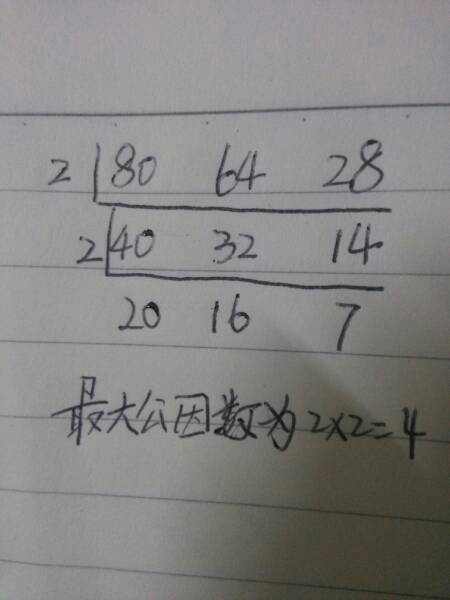 2 80 64 28
2 40 32 14
20 16 7
最大公因数为2×2=4